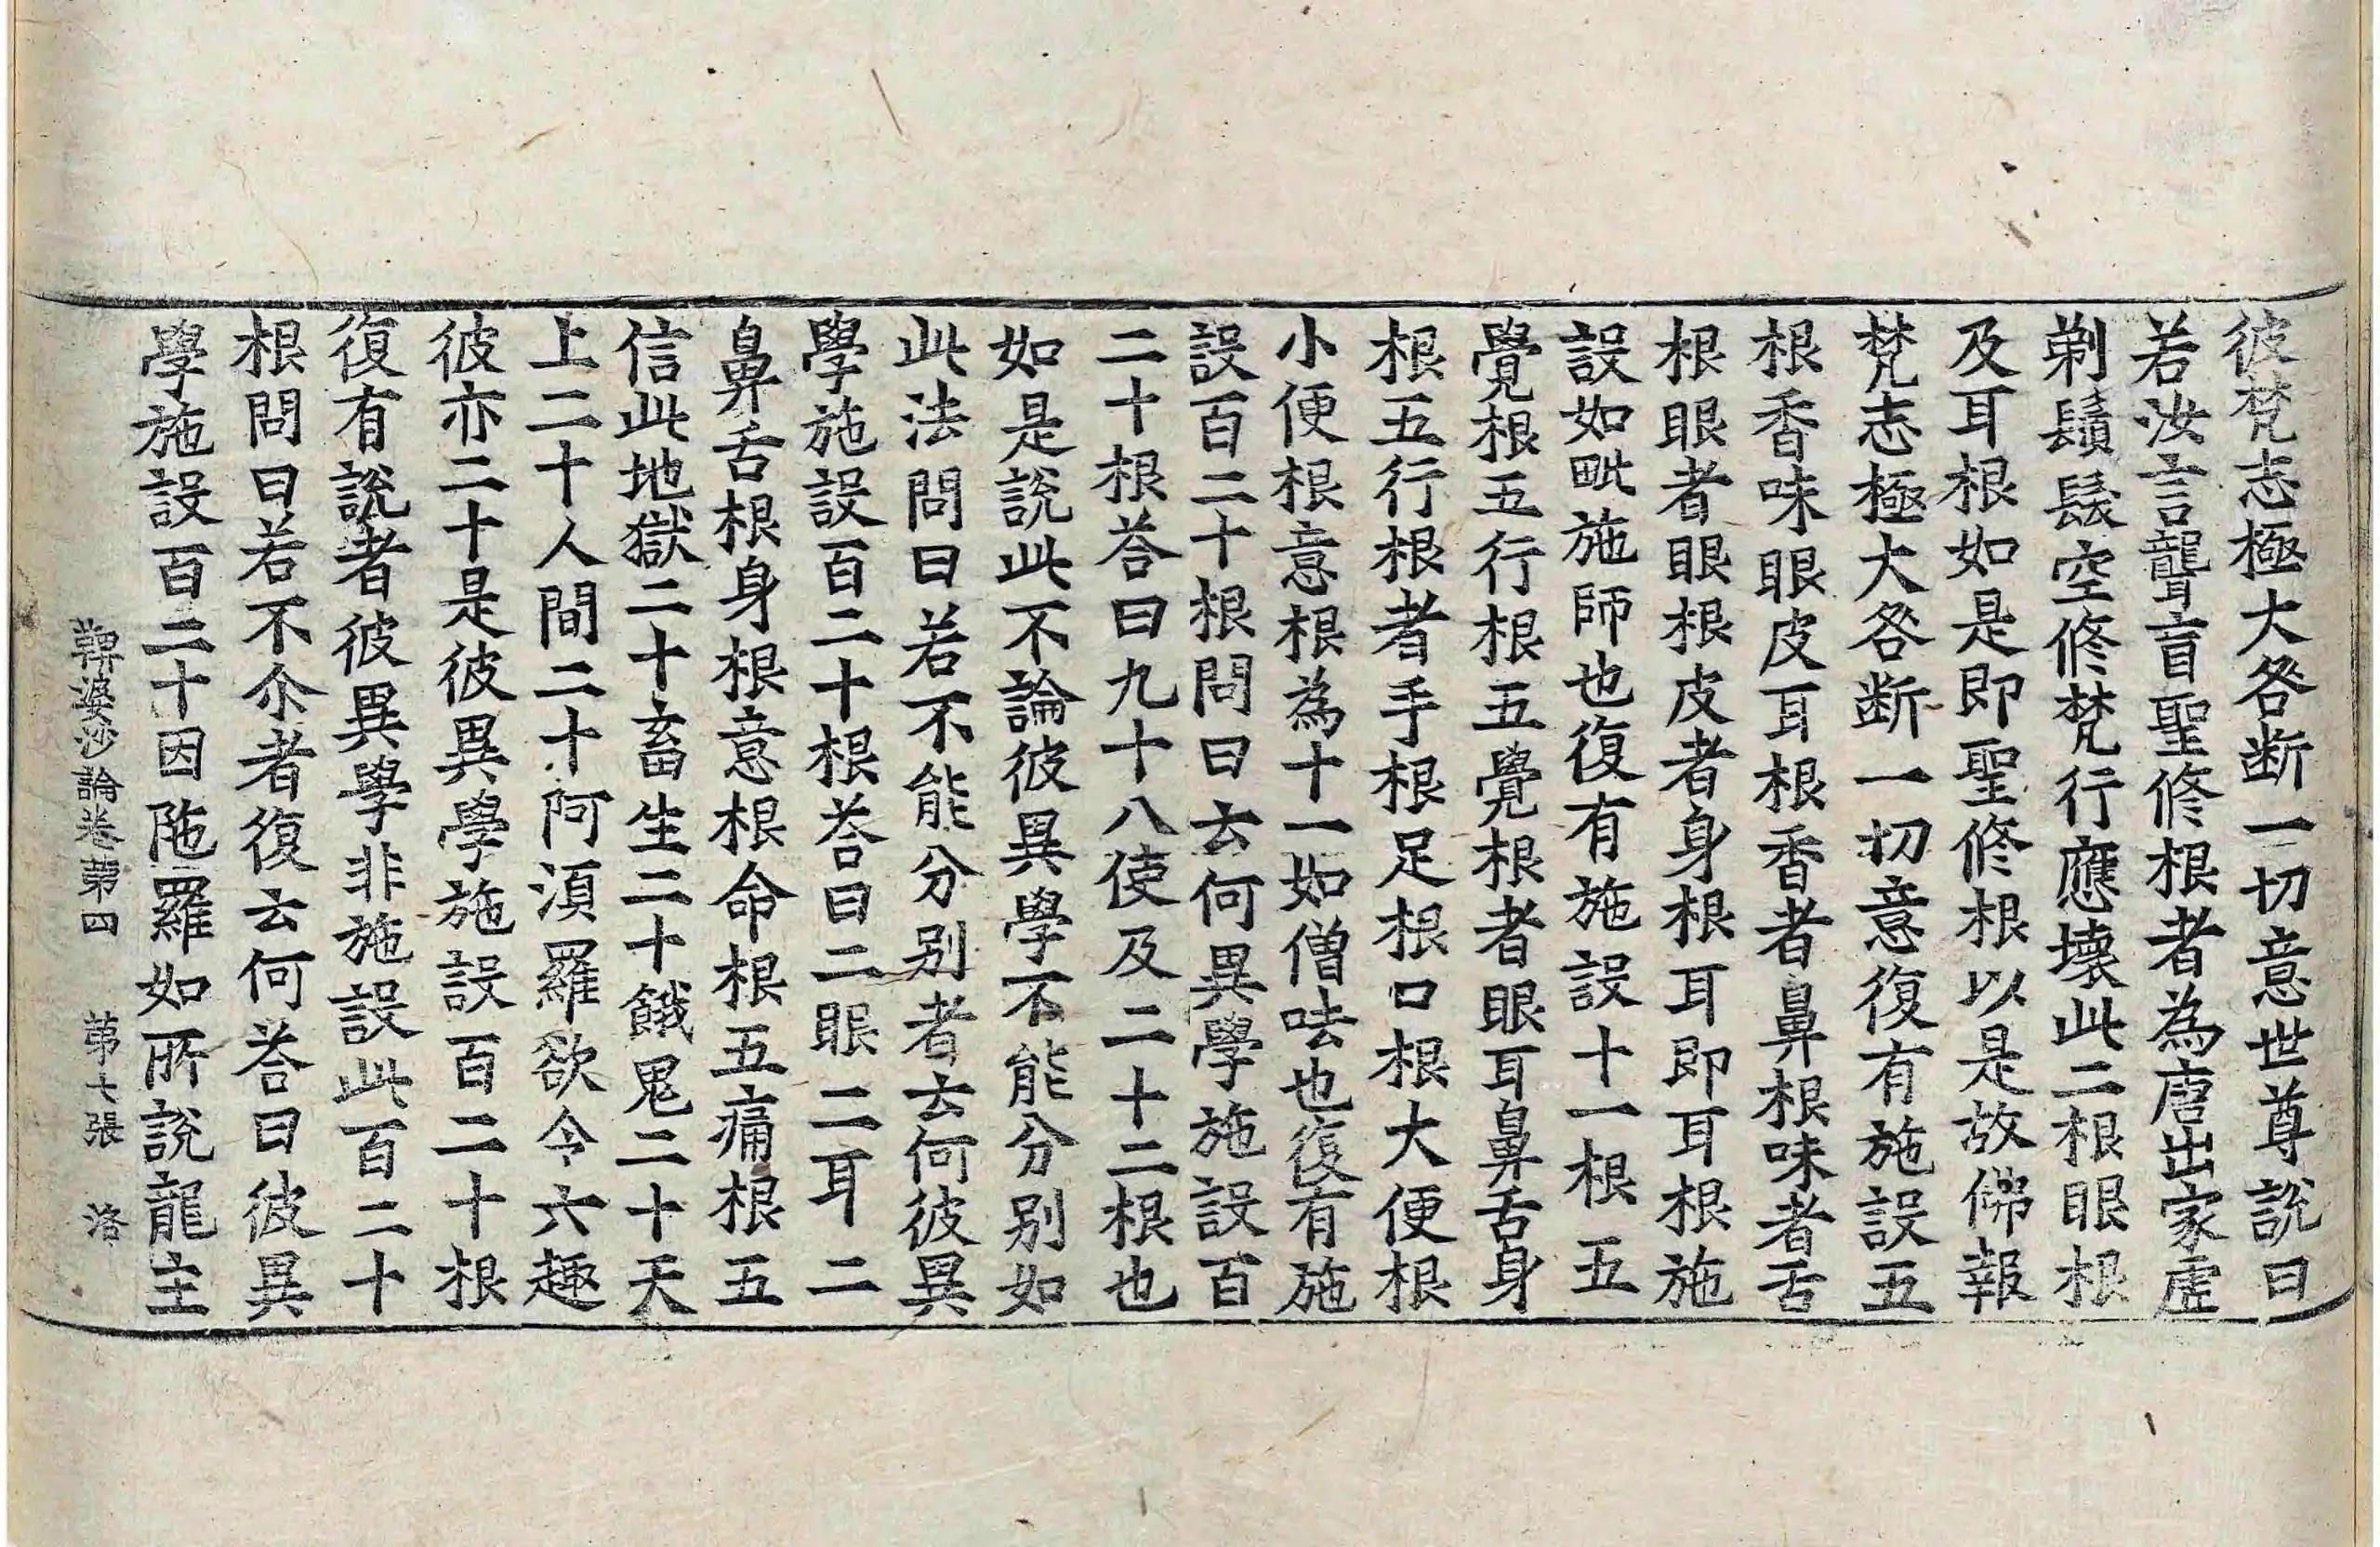 彼梵志極大咎断一切意世尊說曰
若汝言聾盲聖修根者為唐出家虛
剃鬚髮空修梵行應壞此二根眼根
及耳根如是即聖修根以是故佛報
梵志極大咎断一切意復有施設五
根香味眼皮耳根香者鼻根味者舌
根眼者眼根皮者身根耳即耳根施
設如毗施師也復有施設十一根五
覺根五行根五覺根者眼耳鼻舌身
根五行根者手根足根口根大便根
小便根意根為十一如僧呿也復有施
設百二十根問曰云何異學施設百
二十根荅曰九十八使及二十二根也
如是說此不論彼異學不能分别如
此法問曰若不能分别者云何彼異
學施設百二十根荅曰二眼二耳二
鼻舌根身根意根命根五痛根五
信此地獄二十畜生二十餓鬼二十天
上二十人間二十阿湏羅欲令六趣
彼亦二十是彼異學施設百二十根
復有說者彼異學非施設此百二十
根問曰若不尒者復云何荅曰彼異
學施設百二十因陁羅如所說龍主
鞞婆沙論卷苐四 苐七張 洛